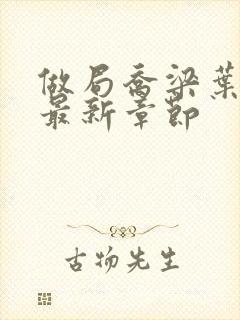 做局乔梁葉
最新章節
古物先生